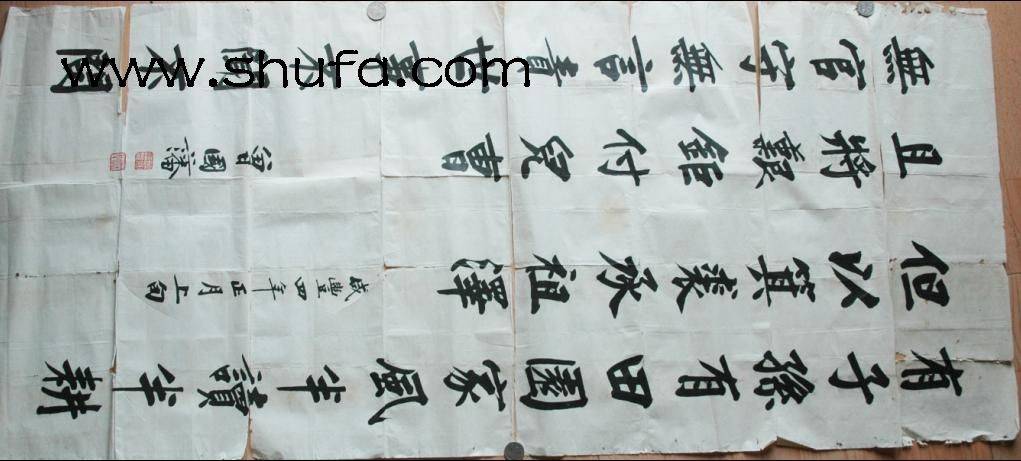 有子孫有田園家風半讀半耕
但以箕裘承祖澤
咸豐四年正月上旬
無官守無言責世事不聞不問
且將艱鉅付兒曹
曾國藩
www.shufa.com